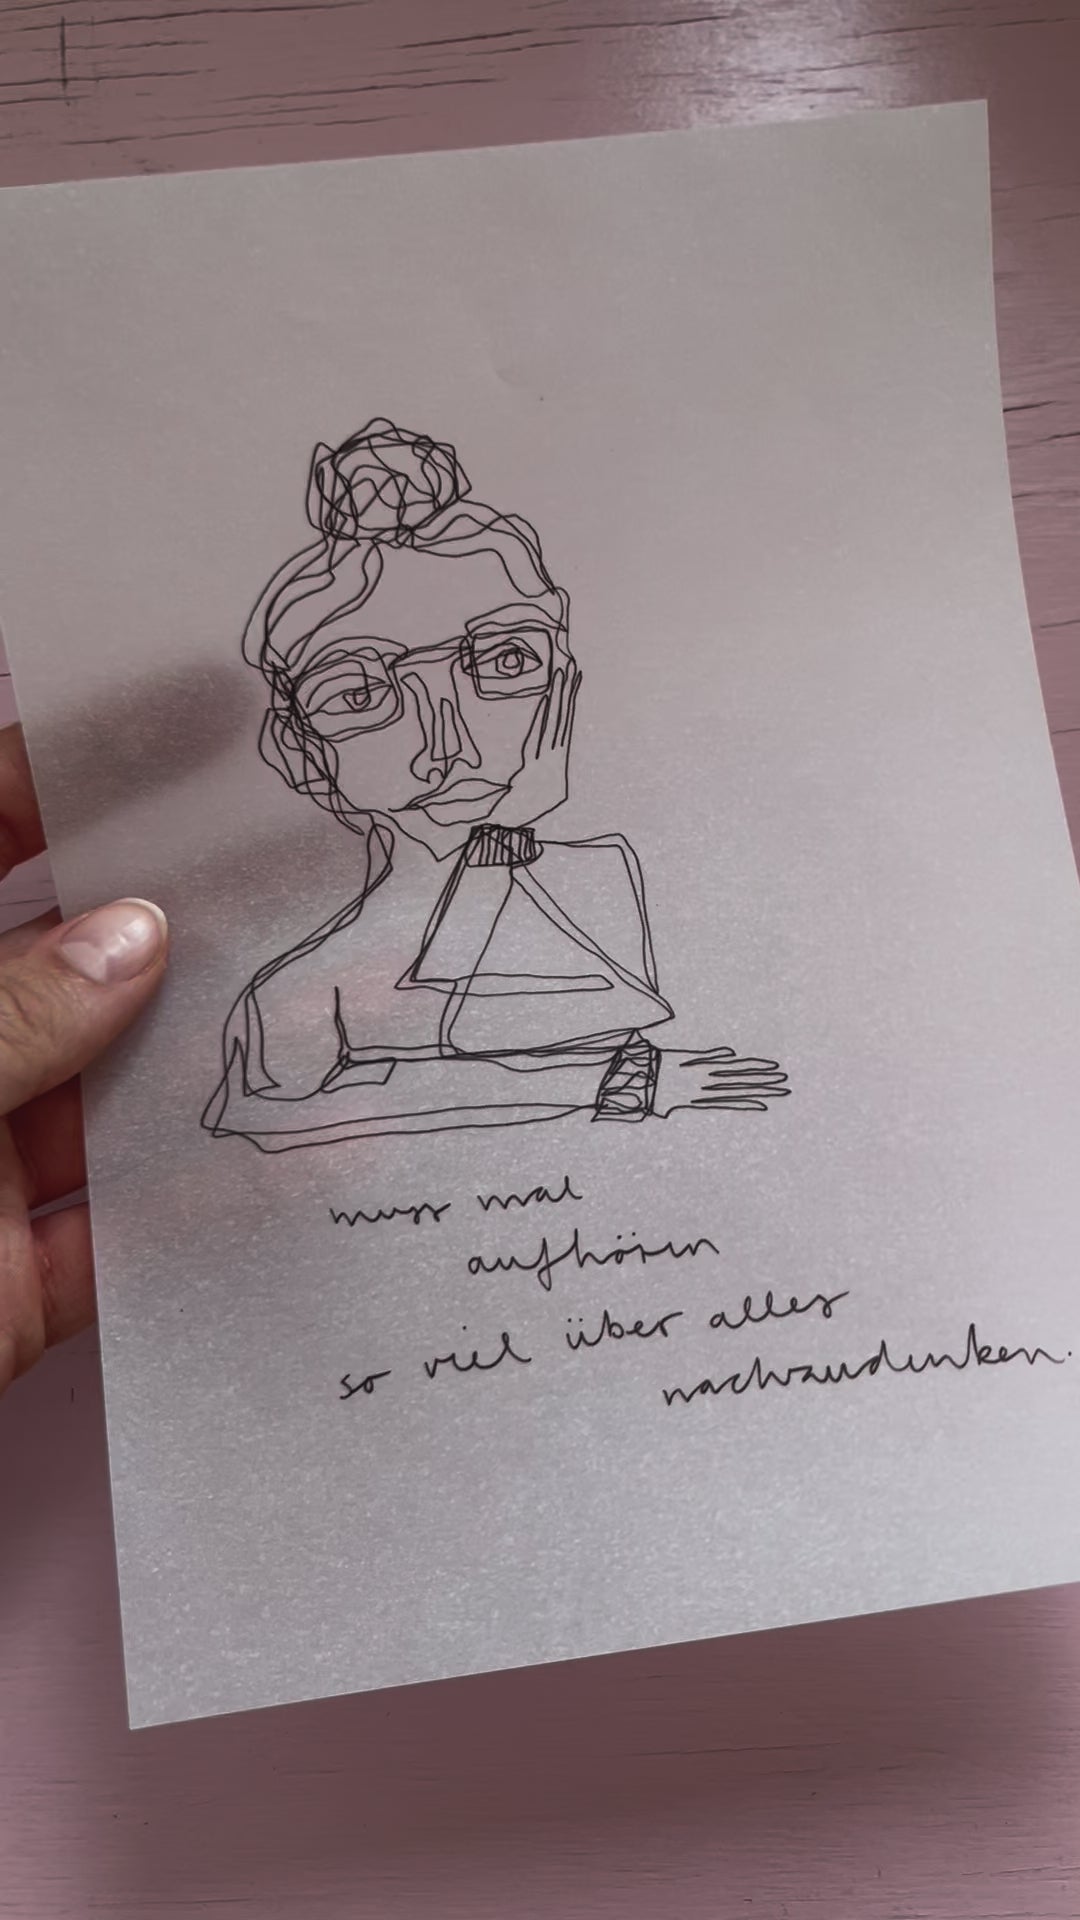 muss mal
aufhören
so viel über alles
nachzudenken.